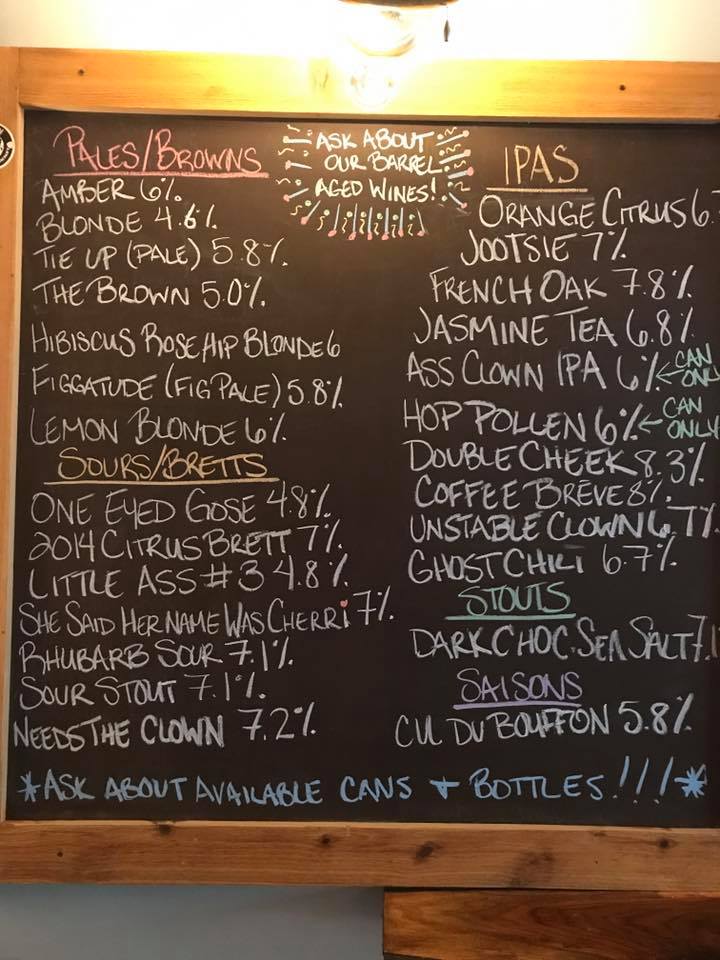 PALES/BROWNS
AMBER 6%
BLONDE 4.6%
TIE UP (PALE) 5.8%
THE BROWN 5.0%
HIBISCUS ROSE HIP BLONDE 6
FIGGATUDE (FIG PALE) 5.8%
LEMON BLONDE 6%
SOURS/BRETTS
ONE EYED GOSE 4.8%
2014 CITRUS BRETT 7%
LITTLE ASS #3 4.8%
SHE SAID HER NAME WAS CHERRI 7%
RHUBARB SOUR 7.1%
SOUR STOUT 7.1%
NEEDS THE CLOWN 7.2%
ASK ABOUT
OUR BARREL
AGED WINES!
IPAS
ORANGE CITRUS 6.
JOOTSIE 7%
FRENCH OAK 7.8%
JASMINE TEA 6.8%
ASS CLOWN IPA 6% ← CAN ONLY
HOP POLLEN 6% ← CAN ONLY
DOUBLE CHEEK 8.3%
COFFEE BRÈVE 8%
UNSTABLE CLOWN 6.7%
GHOST CHILI 6.7%
STOUTS
DARK CHOC. SEA SALT 7.1
SAISONS
CUL DU BOUFFON 5.8%
*ASK ABOUT AVAILABLE CANS + BOTTLES!!!*